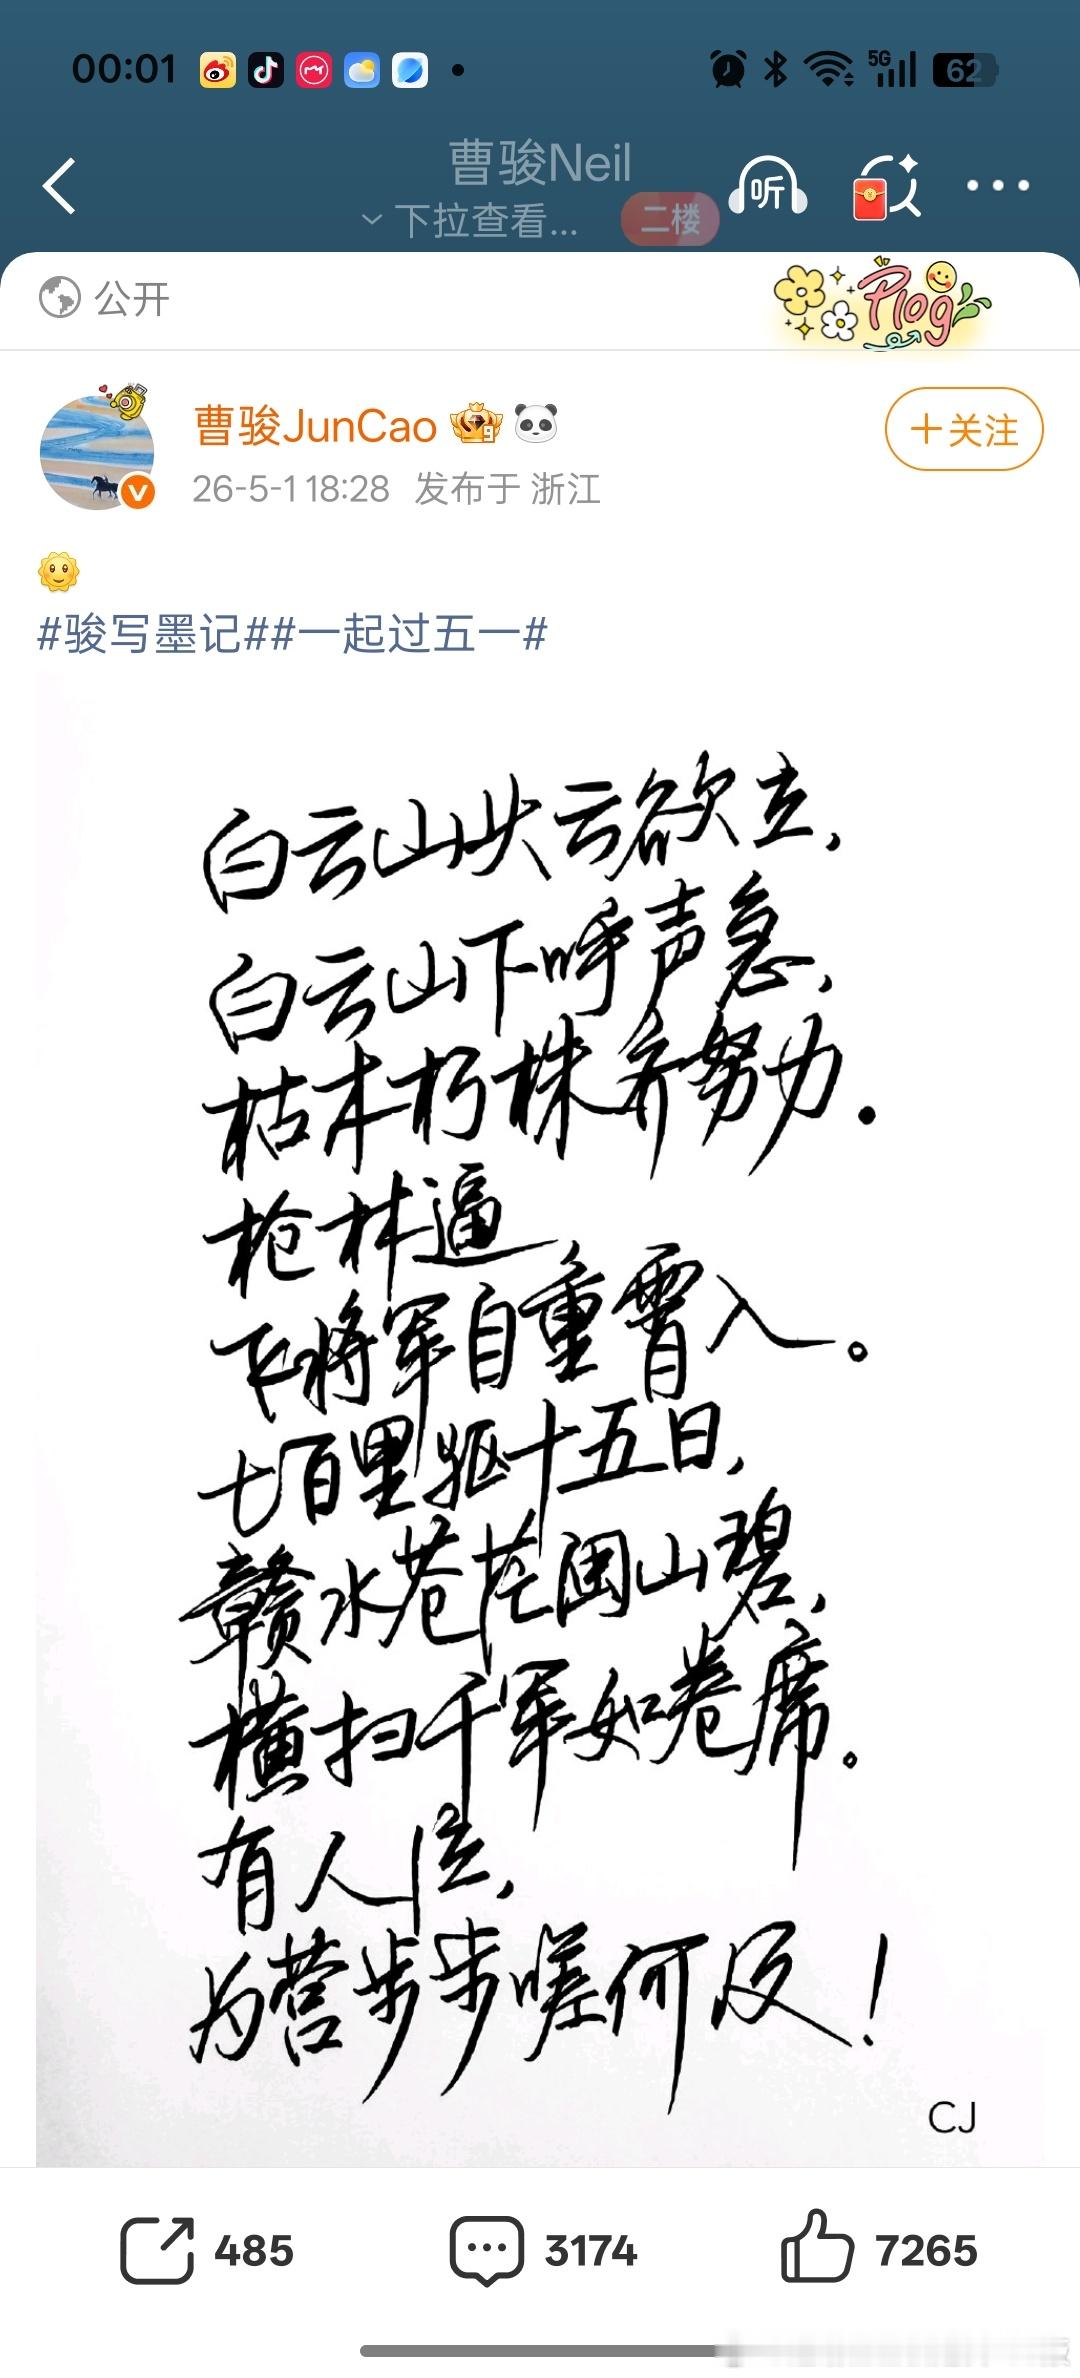 00:01
5G
62
曹骏Neil
下拉查看...
二楼
听
公开
Plog
曹骏JunCao
9
+关注
26-5-1 18:28 发布于 浙江
#骏写墨记##一起过五一#
白云山头云欲立,
白云山下呼声急,
枯木朽株齐努力.
枪林逼
飞将军自重霄入。
七百里驱十五日,
赣水苍茫闽山碧,
横扫千军如卷席。
有人泣,
为营步步嗟何及!
CJ
485
3174
7265